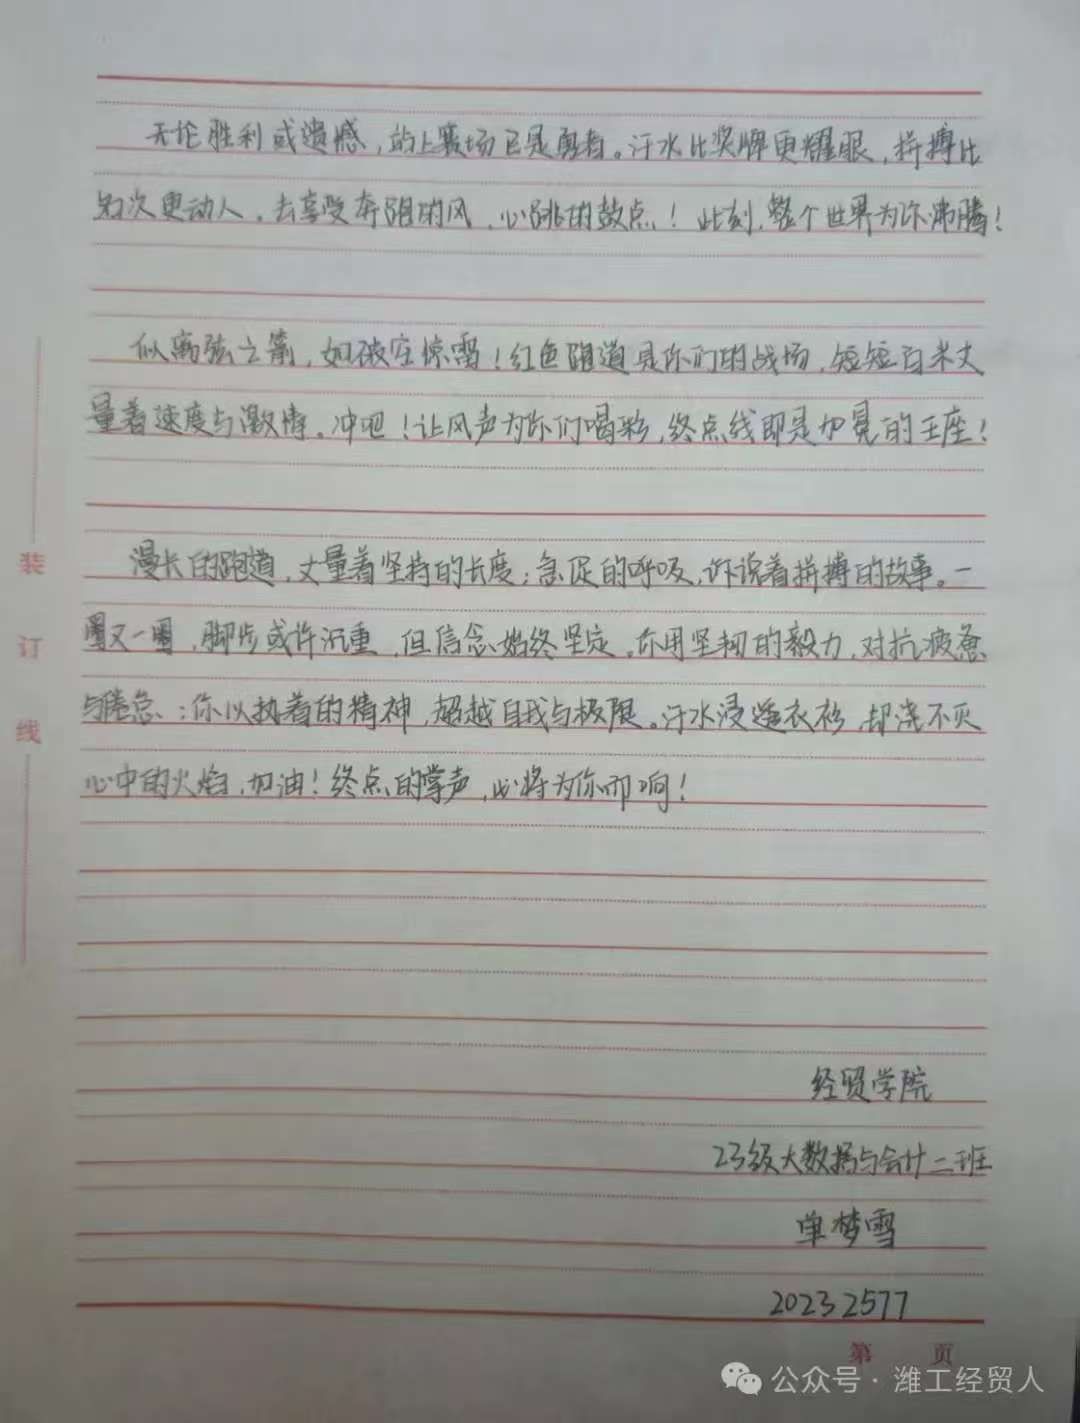 无论胜利或遗憾，站上赛场已是勇者。汗水比奖牌更耀眼，拼搏比
名次更动人，去享受奔跑的风、心跳的鼓点！此刻，整个世界为你沸腾！
似离弦之箭，如破空惊雷！红色跑道是你们的战场，短短百米丈
量着速度与激情。冲吧！让风声为你们喝彩，终点线即是加冕的王座！
漫长的跑道，丈量着坚持的长度；急促的呼吸，诉说着拼搏的故事。一
圈又一圈，脚步或许沉重，但信念始终坚定。你用坚韧的毅力，对抗疲惫
与倦怠；你以执着的精神，超越自我与极限。汗水浸透衣衫，却浇不灭
心中的火焰，加油！终点的掌声，必将为你而响！
装
订
线
经贸学院
23级大数据与会计二班
单梦雪
20232577
第 页
公众号·潍工经贸人